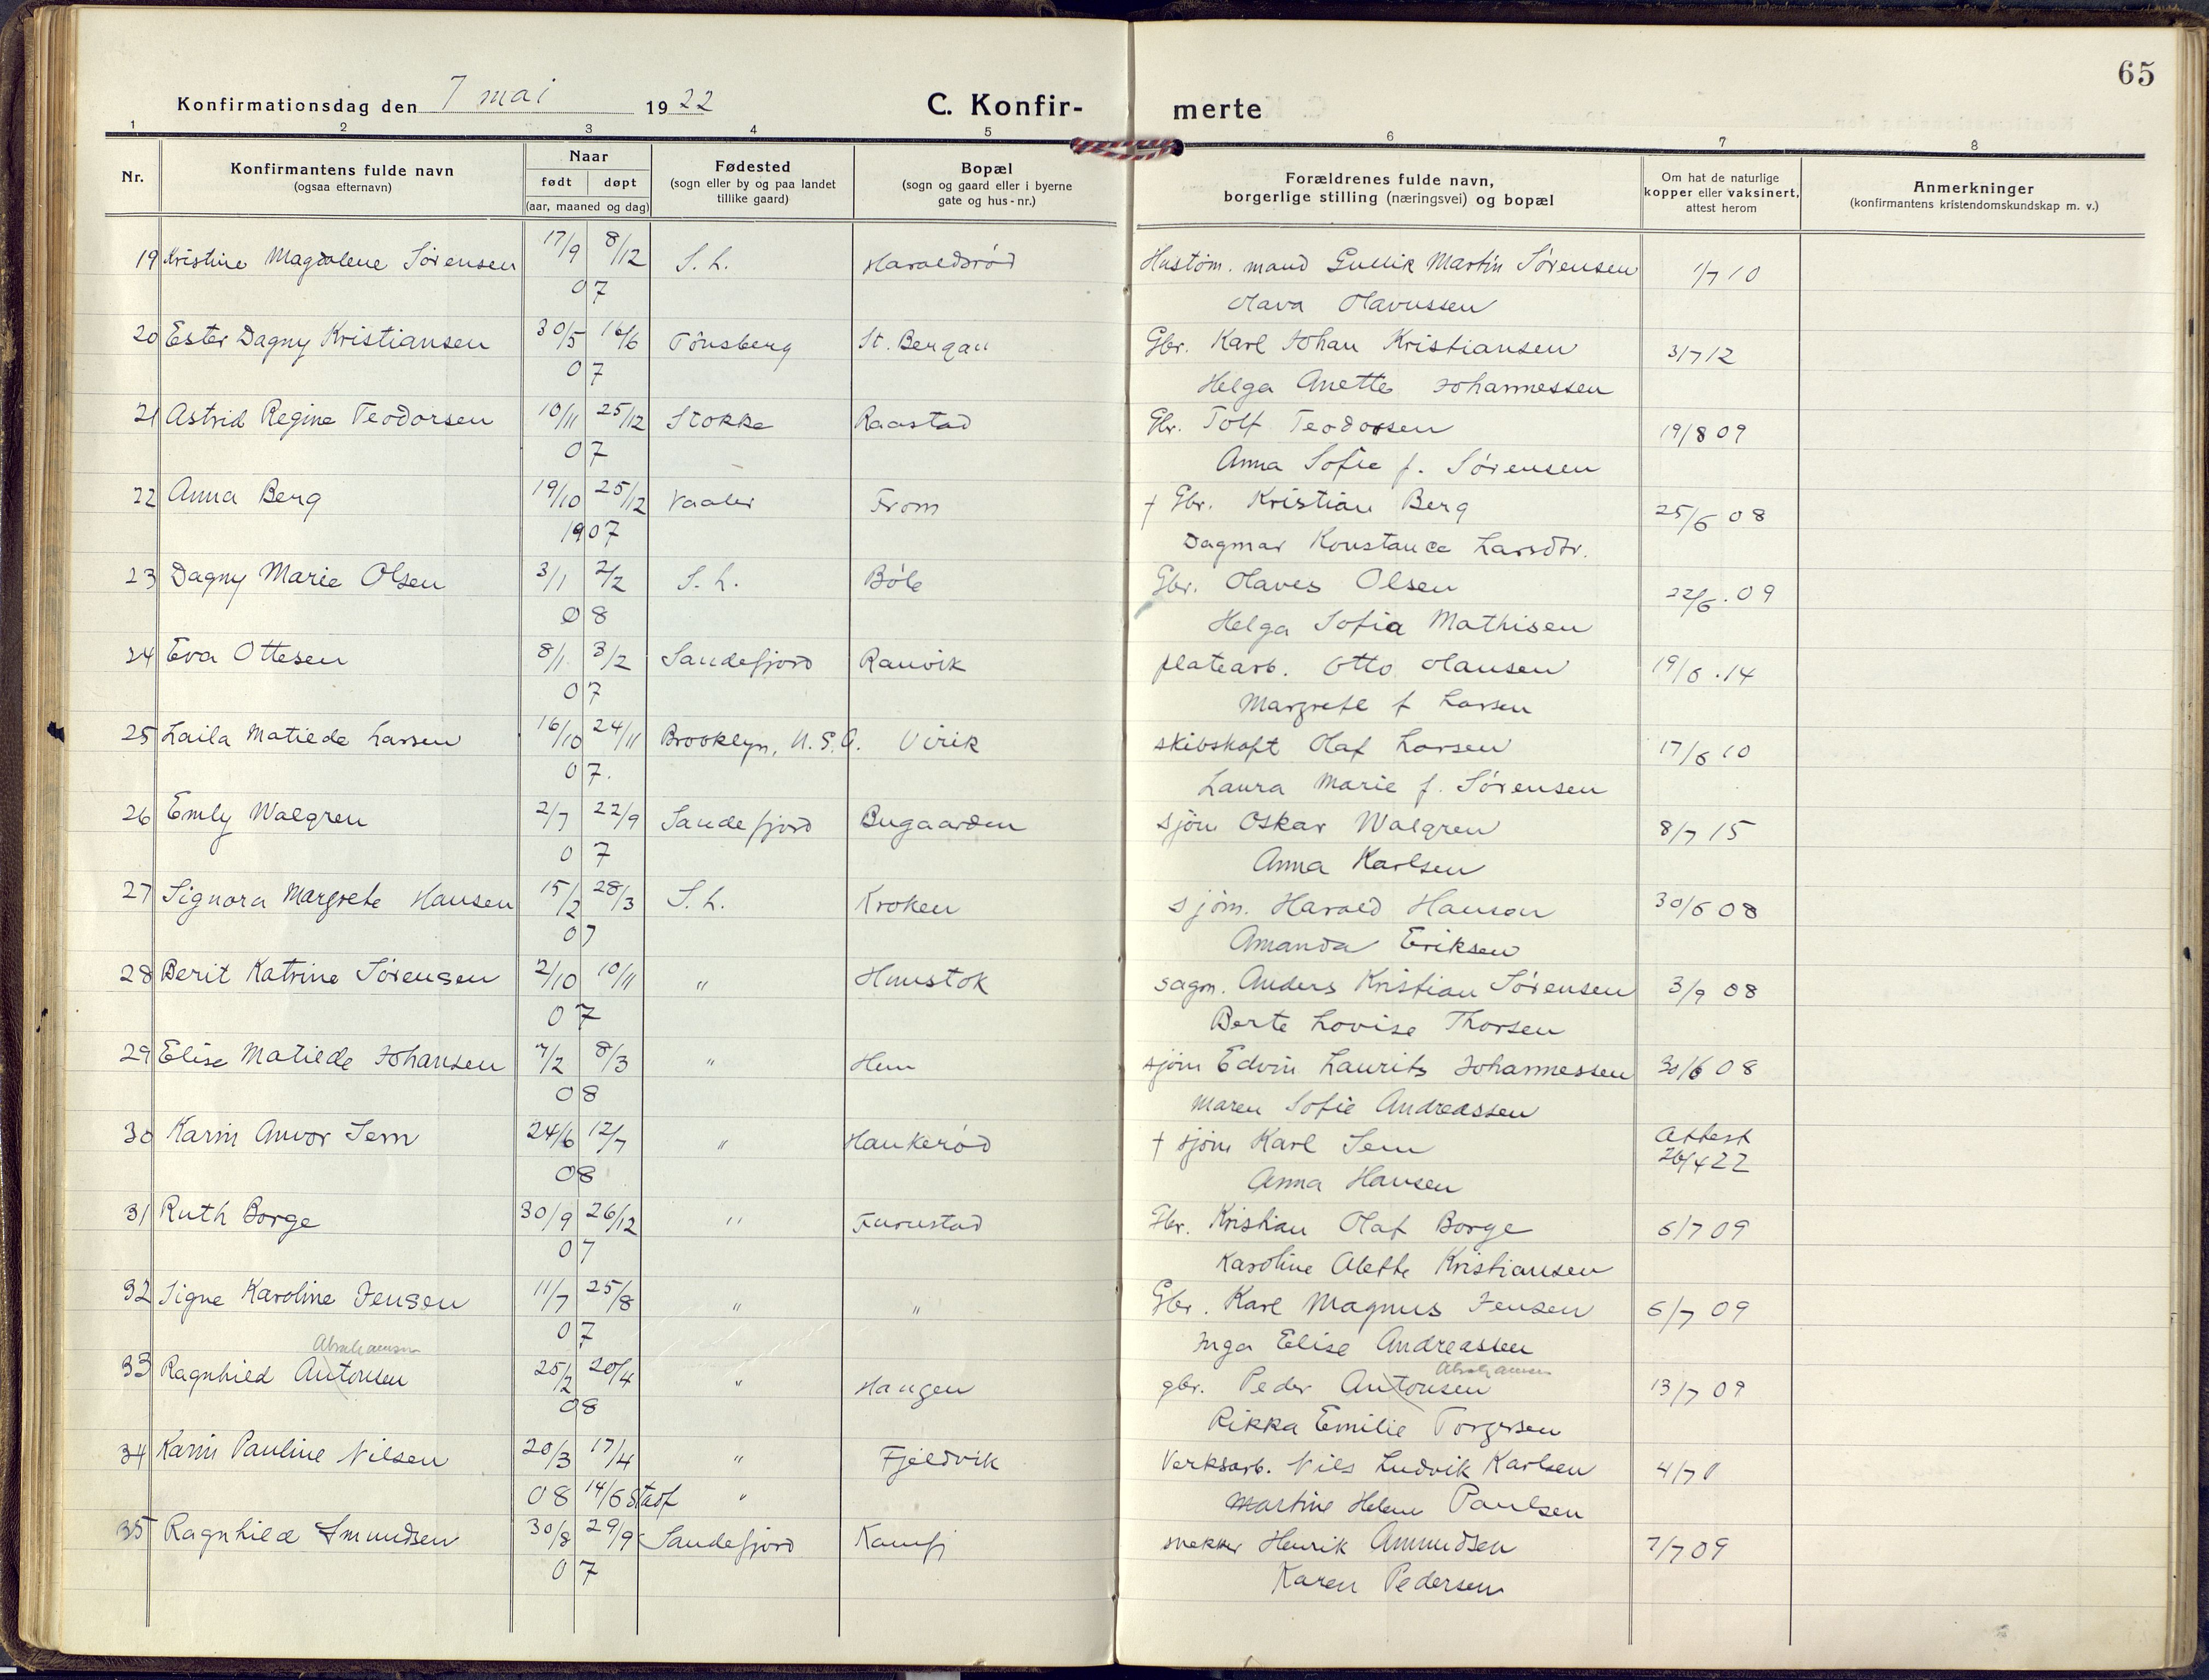 65
Konfirmationsdag den 7 mai 1922 C. Konfir- merte
1 2 3 4 5 6 7 8
Nr. Konfirmantens fulde navn (ogsaa efternavn) Naar født døpt (aar, maaned og dag) Fødested (sogn eller by og paa landet tillike gaard) Bopæl (sogn og gaard eller i byerne gate og hus-nr.) Forældrenes fulde navn, borgerlige stilling (næringsvei) og bopæl Om hat de naturlige kopper eller vaksinert, attest herom Anmerkninger (konfirmantens kristendomskundskap m. v.)
19 Kristine Magdalene Sørensen 17/9 8/12 S. h. Haraldsrød Hustøm. mand Gullik Martin Sørensen 1/7 10
07 Olava Olavussen
20 Ester Dagny Kristiansen 30/5 16/6 Tønsberg St. Bergan Gbr. Karl Johan Kristiansen 3/7 12
07 Helga Anette Johannessen
21 Astrid Regine Teodorsen 10/11 25/12 Stokke Raastad Gbr. Tolf Teodorsen 19/8 09
07 Anna Sofie f. Sørensen
22 Anna Berg 19/10 25/12 Vaaler From † Gbr. Kristian Berg 25/6 08
1907 Dagmar Konstance Larsdtr.
23 Dagny Marie Olsen 3/1 2/2 S. h. Bøle Gbr. Olaves Olsen 22/6 . 09
08 Helga Sofia Mathisen
24 Eva Ottesen 8/1 3/2 Sandefjord Ranvik platearb. Otto Hansen 19/6 . 14
07 Margrete f Larsen
25 Laila Matilde Larsen 16/10 24/11 Brooklyn, U.S.A. Virik skibskapt Olaf Larsen 17/6 10
07. Laura Marie f. Sørensen
26 Emly Walgren 2/7 22/9 Sandefjord Bugaarden sjøm Oskar Walgren 8/7 15
07 Anna Karlsen
27 Signora Margrete Hansen 15/2 28/3 S. h. Kroken sjøm. Harald Hanson 30/6 08
07 Amanda Eriksen
28 Berit Katrine Sørensen 2/10 10/11 " Hunstok sagm. Anders Kristian Sørensen 3/9 08
07 Berte Lovise Thorsen
29 Elise Matilde Johansen 7/2 8/3 " Hem sjøm Edvin Laurits Johannessen 30/6 08
08 Maren Sofie Andreassen
30 Karin Anvor Sem 24/6 12/7 " Haukerød † sjøm Karl Sem Attest
08 Anna Hansen 26/4 22
31 Ruth Borge 30/9 26/12 " Furustad Gbr. Kristian Olaf Borge 6/7 09
07 Karoline Alette Kristiansen
32 Signe Karoline Jensen 11/7 25/8 " " Gbr. Karl Magnus Jensen 6/7 09
07 Inga Elise Andreassen
Abrahamsen Abrahamsen
33 Ragnhild Antonsen 25/2 20/4 " Haugen gbr. Peder Antonsen 13/7 09
08 Rikka Emilie Torgersen
34 Karin Pauline Nilsen 20/3 17/4 " Fjeldvik Verksarb. Nils Ludvik Karlsen 4/7
08 14/6 Stadf " Martine Helene Paulsen
35 Ragnhild Amundsen 30/8 29/9 Sandefjord Kamfj snekker Henrik Amundsen 7/7 09
07 Karen Pedersen